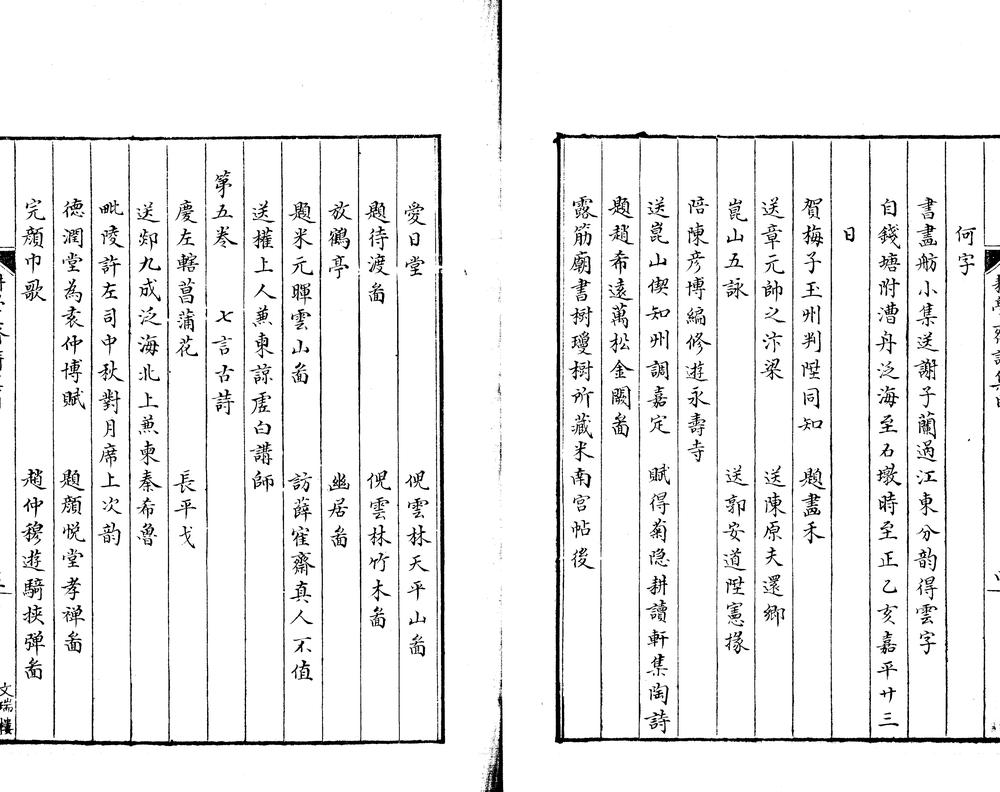 何字
書畫舫小集送謝子蘭過江東分韵得雲字
自錢塘附漕舟泛海至石墩時至正乙亥嘉平廿三
日
賀梅子玉州判陞同知　題畫禾
送章元帥之汴梁　送陳原夫還鄉
崑山五詠　送郭安道陞憲掾
陪陳彦博編修遊永壽寺
送崑山偰知州調嘉定　賦得菊隐耕讀軒集陶詩
題趙希遠萬松金闕啚
露筋廟書樹瓊樹所藏米南宮帖後
愛日堂　倪雲林天平山啚
題待渡啚　倪雲林竹木啚
放鶴亭　幽居啚
題米元暉雲山啚　訪薛寉齋真人不值
送権上人蒹東諒虗白講師
第五弮　七言古詩
慶左轄菖蒲花　長平戈
送郯九成泛海北上蒹柬秦希魯
毗陵許左司中秋對月席上次韵
德潤堂為袁仲博賦　題顔悦堂孝禅啚
完顔巾歌　趙仲穆遊騎挾彈啚
文瑞樓